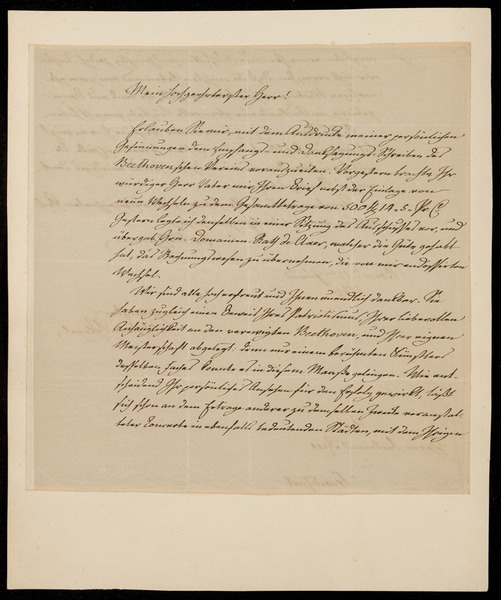 Mein hochgeehrtester Herr!
Erlauben Sie mir, mit dem Ausdrucke meiner persönlichen
Gesinnungen dem Empfangs- und Danksagungs-Schreiben des
Beethoven'schen Vereins vorauszueilen. Vorgestern brachte Ihr
würdiger Herr Vater mir Ihren Brief nebst der Einlage von
neun Wechseln zu dem Gesammtbetrage von
Gestern legte ich denselben in einer Sitzung des Ausschusses vor, und
übergab Hrn. Domainen-Rath de Claer, welcher die Güte gehabt
hat, das Rechnungswesen zu übernehmen, die von mir endossirten
Wechsel.
Wir sind alle hocherfreut und Ihnen unendlich dankbar. Sie
haben zugleich einen Beweis Ihres Patriotismus, Ihrer liebevollen
Anhänglichkeit an den verewigten Beethoven, und Ihrer eigenen
Meisterschaft abgelegt: denn nur einem berühmten Künstler
desselben Faches konnte es in diesem Maaße gelingen. Wie ent-
scheidend Ihr persönliches Ansehen für den Erfolg gewirkt, läßt
sich schon an dem Ertrage anderer zu demselben Zwecke veranstal-
teter Concerte in ebenfalls bedeutenden Städten, mit dem Ihrigen